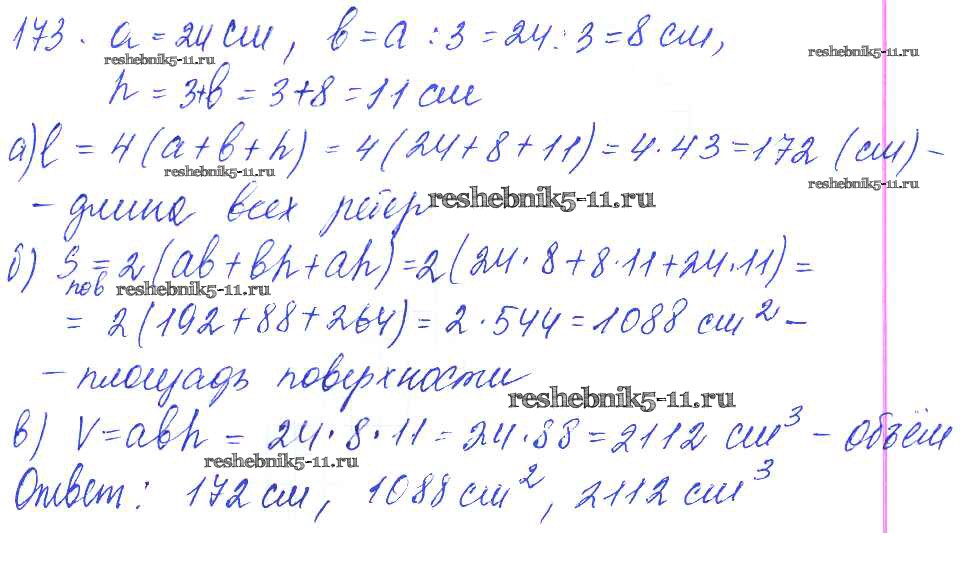 173. a = 24 см, b = a : 3 = 24 : 3 = 8 см,
reshebnik5-11.ru reshebnik5-11.ru
h = 3+b = 3+8 = 11 см
а) l = 4(a+b+h) = 4(24+8+11) = 4·43 = 172 (см) –
reshebnik5-11.ru reshebnik5-11.ru
– длина всех рёбер reshebnik5-11.ru
б) Sпов = 2(ab+bh+ah) = 2(24·8+8·11+24·11) =
reshebnik5-11.ru
= 2(192+88+264) = 2·544 = 1088 см² –
– площадь поверхности
reshebnik5-11.ru
в) V = abh = 24·8·11 = 24·88 = 2112 см³ – объём
reshebnik5-11.ru
Ответ: 172 см, 1088 см², 2112 см³